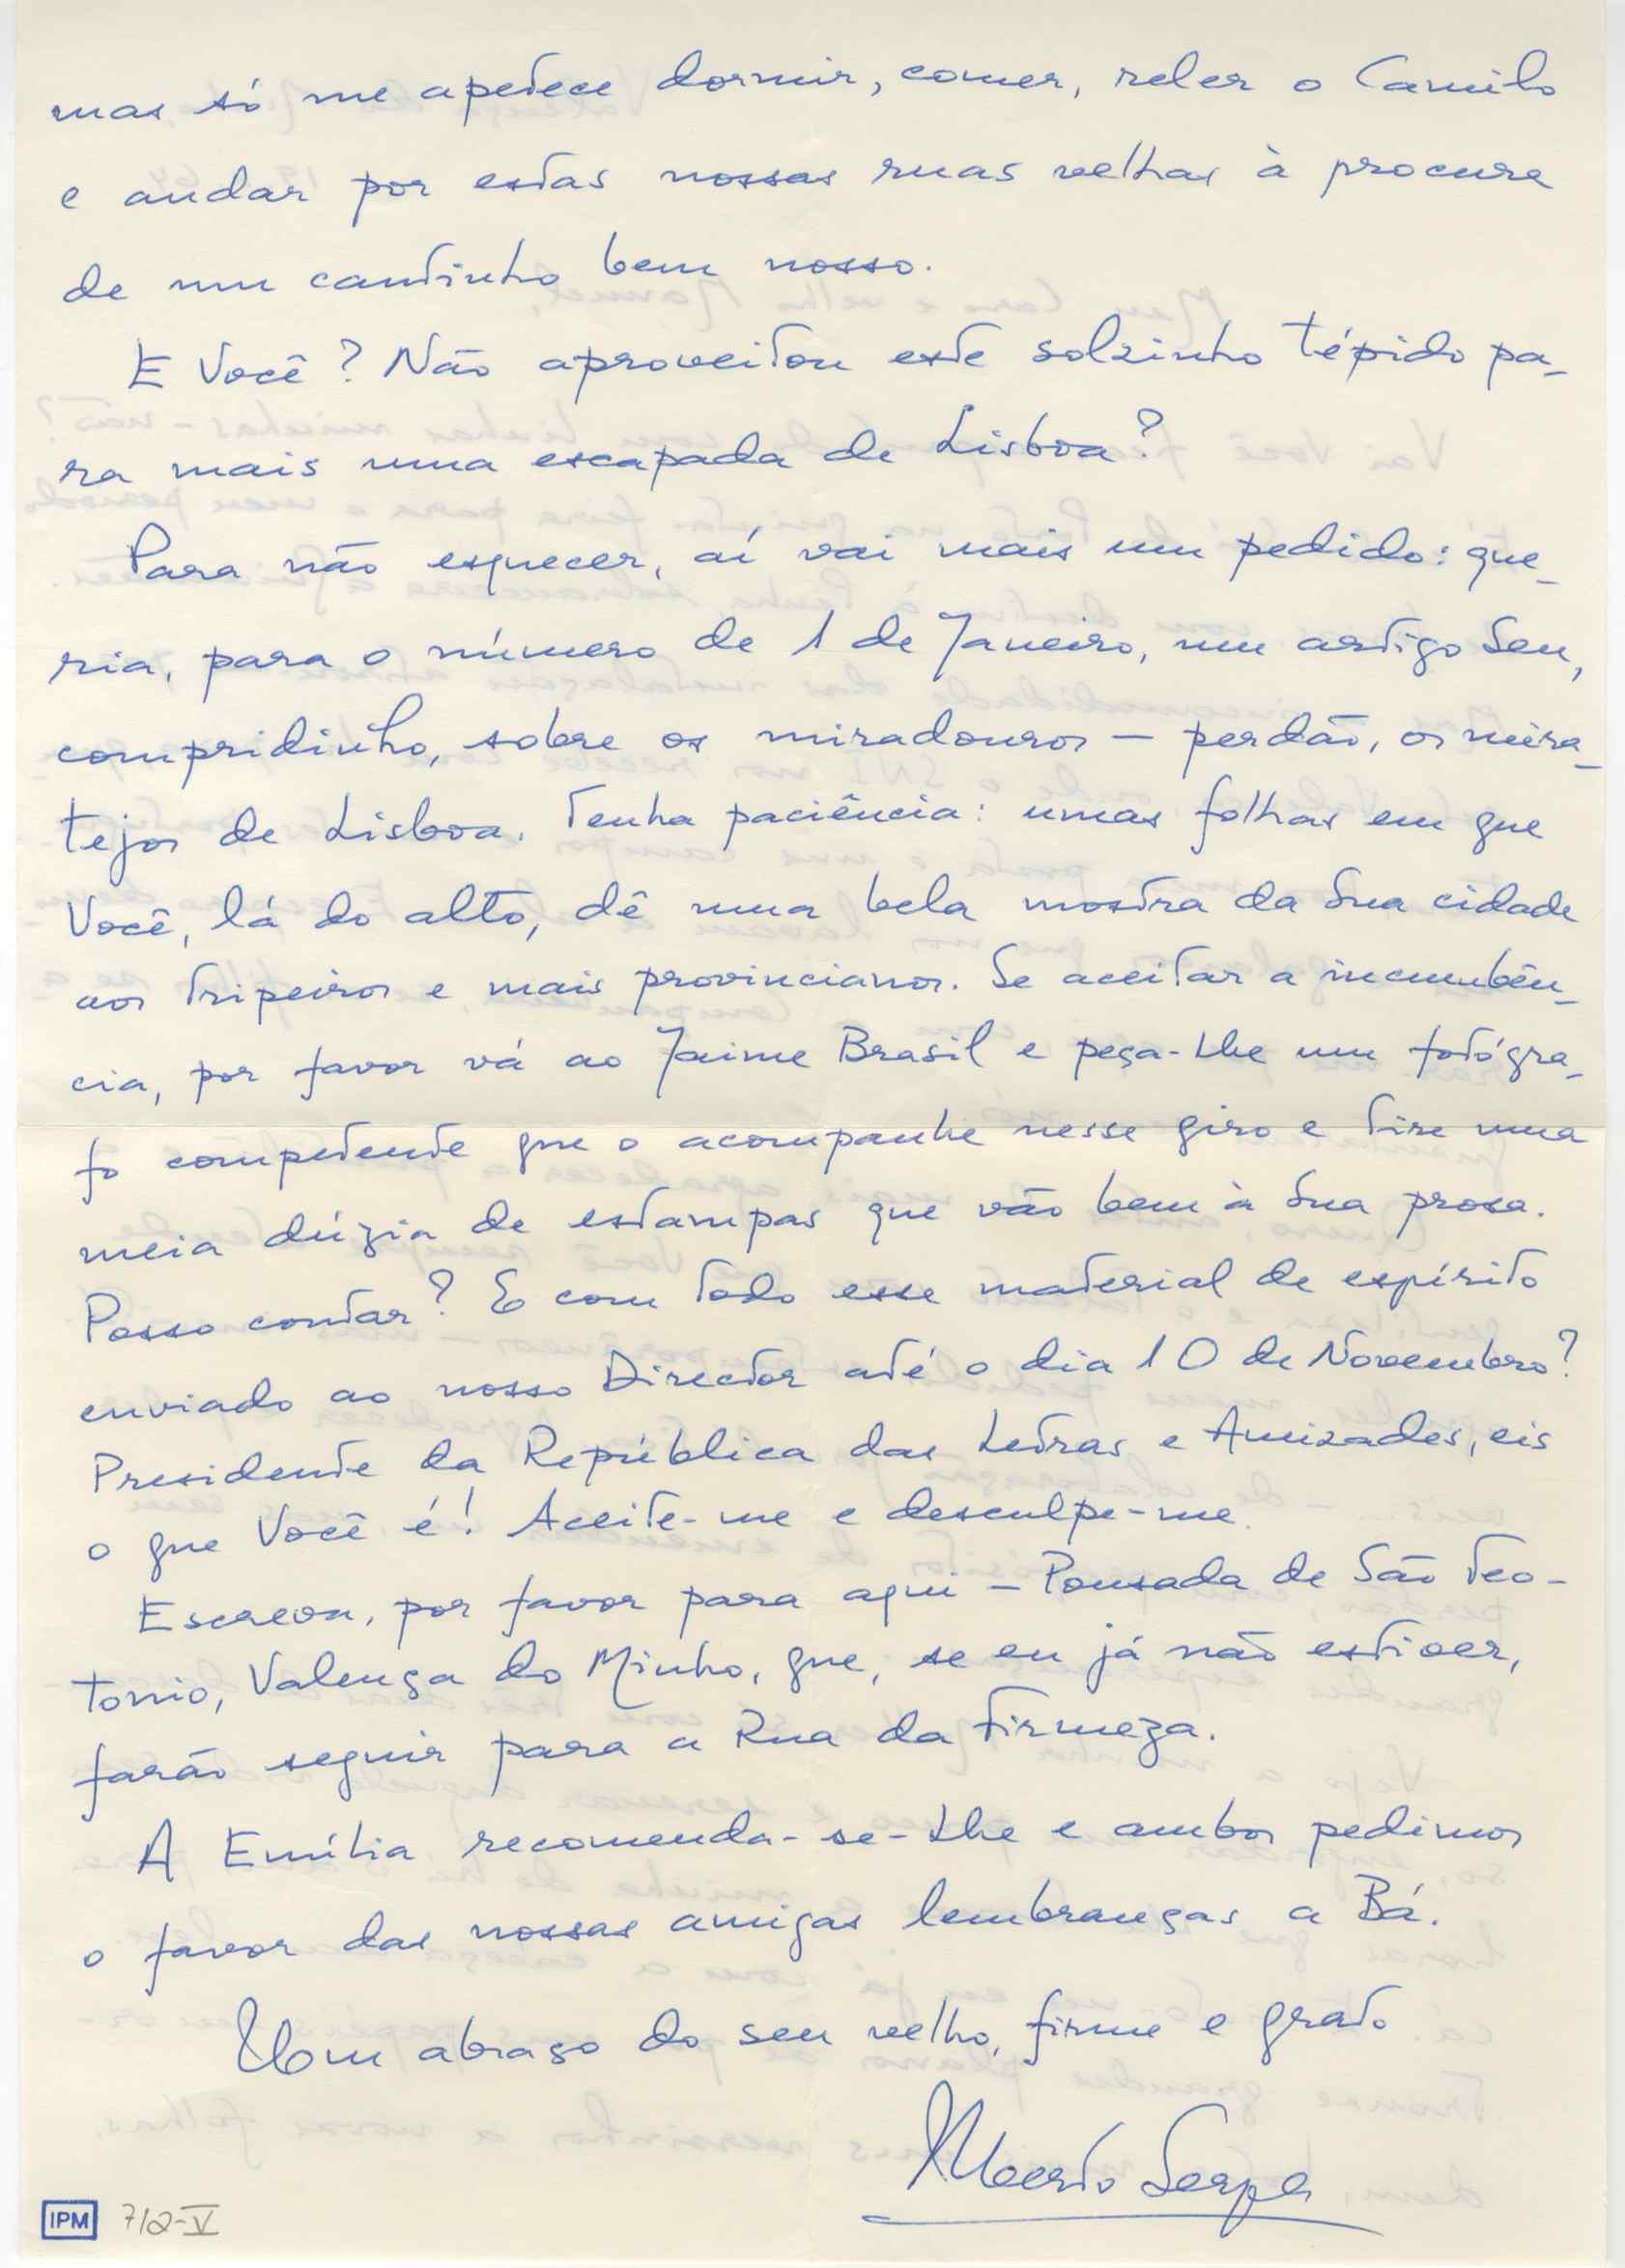 mas só me apetece dormir, comer, reler o Camilo
e andar por estas nossas ruas velhas à procura
de um cantinho bem nosso.
E Você? Não aproveitou este solzinho tépido pa-
ra mais uma escapada de Lisboa?
Para não esquecer, aí vai mais um pedido: que-
ria, para o número de 1 de Janeiro, um artigo Seu,
compridinho, sobre os miradouros – perdão, os mira-
tejos de Lisboa. Tenha paciência: umas folhas em que
Você, lá do alto, dê uma bela mostra da Sua cidade
aos tripeiros e mais provincianos. Se aceitar a incumbên-
cia, por favor vá ao Jaime Brasil e peça-Lhe um fotógra-
fo competente que o acompanhe nesse giro e tire uma
meia dúzia de estampas que vão bem à Sua prosa.
Posso contar? E com todo esse material de espírito
enviado ao nosso Director até o dia 10 de Novembro?
Presidente da República das Letras e Amizades, eis
o que Você é! Aceite-me e desculpe-me.
Escreva, por favor para aqui – Pousada de São Teo-
tonio, Valença do Minho, que, se eu já não estiver,
farão seguir para a Rua da Firmeza.
A Emília recomenda-se-Lhe e ambos pedimos
o favor das nossas amigas lembranças a Bá.
Um abraço do seu velho, firme e grato
Alberto Serpa
IPM 712-V